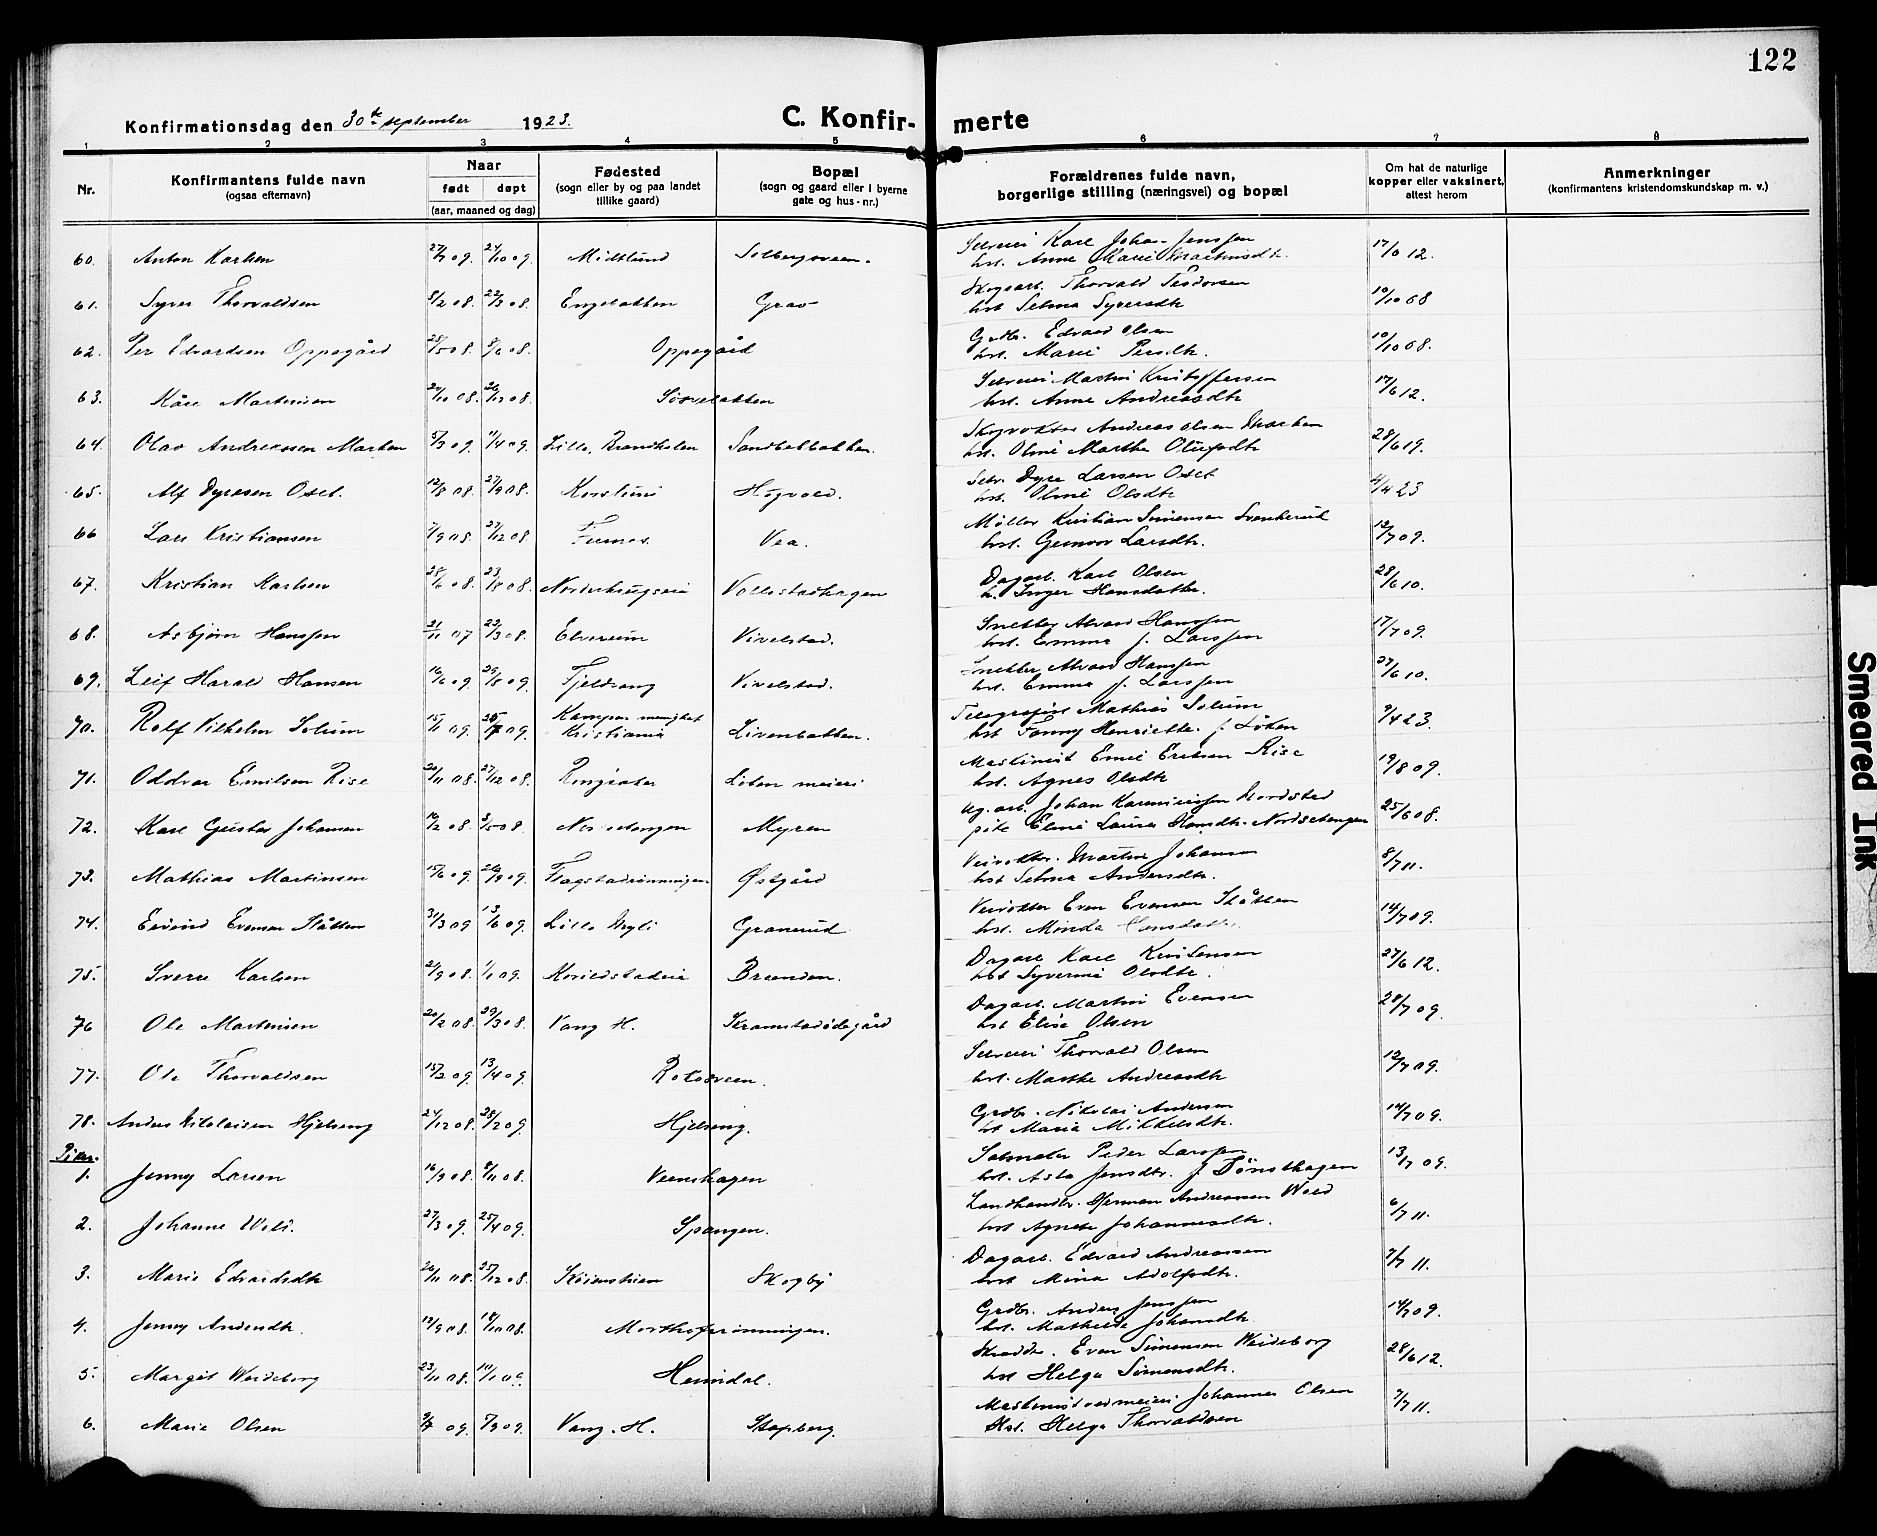 122
Konfirmationsdag den 30te september 1923.
C. Konfir- merte
1 2 3 4 5 6 7 8
Nr.
Konfirmantens fulde navn
(ogsaa efternavn)
Naar
født døpt
(aar, maaned og dag)
Fødested
(sogn eller by og paa landet
tillike gaard)
Bopæl
(sogn og gaard eller i byerne
gate og hus-nr.)
Forældrenes fulde navn,
borgerlige stilling (næringsvei) og bopæl
Om hat de naturlige
kopper eller vaksinert,
attest herom
Anmerkninger
(konfirmantens kristendomskundskap m. v.)
60. Anton Karlsen 27/7 09. 24/10 09. Midtlund Solbergsveen. Karl Johan Jenssen
hst. Anne Marie 17/6 12.
61. Syver Thorvaldsen 8/2 08. 22/3 08. Engebakken Grav Skogsarb. Thorvald
hst Selma Syversdtr 10/10 08
62. Per Edvardsen Oppegård 8/6 08. Oppegård Grdbr. Edvard Olsen
hst. Marie Persdtr. 10/10 08.
63. Kåre Martinsen 26/12 08. Martin Kristoffersen
hst. Anne Andreasdtr 17/6 12.
64. Olav Andreassen Machen Lille Brandhelen Sandbakbakken. Skogvokter Andreas Olsen Machen
hst. Oline Marthe Olufsdtr 28/6 19.
65. Alf Dyresen Oset. 12/8 08. 27/9 08. Høgvold. Dyre Larsen Oset
hst. Oline Olsdtr 4/4 23
66 Lars Kristiansen 7/9 08. 27/12 08. Furnes. Vea. Møller Kristian Simensen
hst. Gunvor Larsdtr. 12/7 09.
67. Kristian Karlsen 28/6 08. 23/8 08. Vollestadhagen Dagarb. Karl Olsen
h. Inger Hansdatter. 28/6 10.
68. Asbjørn Hanssen 21/11 07 22/3 08. Elverum Vivelstad. Snekker Alvar Hanssen
hst. Emma f. Larssen 17/7 09.
69. Leif Harald Hansen 16/6 09. 29/8 09. Fjeldvang Vivelstad. Snekker Alvar Hanssen
hst. Emma f. Larssen 27/6 10.
70. Rolf Vilhelm Solum 15/1 09. 09. Kampen menighet
Kristiania Livenbakken. Telegrafist Mathias Solum
hst Fanny Henriette f. Løken 9/4 23.
71. Oddvar Emilsen Rise 20/11 08. 27/12 08. Ringsaker Løten meieri Maskinist Emil Eriksen Rise
hst. Agnes Olsdtr 19/8 09.
72. Karl Gustav Johansen 16/2 08. 3/5 08. Nordstangen Myren Ug. arb. Johan Nordstad
pike Eline Laura Hansdtr. Nordstangen 25/6 08.
73. Mathias Martinsen 15/6 09. 26/9 09. Flagstadrønningen Østgård Veivokter. Martin Johansen
hst Selma Andersdtr. 8/7 11.
74. Eivind Evensen Slåtten 31/3 09 13/6 09. Lille Myli Granerud Veivokter Even Evensen Slåtten
hst. Minda Hansdatter. 14/7 09.
75. Sverre Karlsen 24/9 08. 1/1 09. Brænden. Dagarb Karl Kristensen
hst Syverine Olsdtr. 27/6 12.
76 Ole Martinsen 20/2 08. 29/3 08. Vang H. Skramstadødegård Dagarb. Martin Evensen
hst Elise Olsen 28/7 09.
77. Ole Thorvaldsen 15/2 09. 13/4 09. Rokosveen. Selveier Thorvald Olsen
hst. Marthe Andreasdtr 12/7 09.
78. Anders Nikolaisen Hjelseng 24/12 08. 28/2 09. Hjelseng. Grdbr. Nikolai Andersen
hst Maria Mikkelsdtr. 14/7 09.
Piker.
1. Jenny Larsen 16/9 08. 8/11 08. Veenshagen Salmaker Peder Larssen
hst. Asta Jensdtr. f. Dønsthagen 13/7 09.
2. Johanne Wold. 27/3 09. 25/4 09. Spangen. Landhandler. Herman Andreassen Wold
hst Agnete Johannesdtr. 6/7 11.
3. Marie Edvardsdtr 26/11 08. 25/12 08. Skogby Dagarb. Edvard Andreassen
hst Mina Adolfsdtr. 7/7 11.
4. Jenny Andersdtr. 12/9 08. 18/10 08. Grdbr. Anders Jenssen
hst. Mathilde Johansdtr. 14/7 09.
5. Margit Weideborg 23/11 08. 10/1 09. Heimdal. Skrædder. Even Simensen Weideborg
hst Helga Simensdtr. 28/6 12.
6. Marie Olsen 09. 7/3 09. Vang. H. Stapberg. Maskinist ved meieri Johannes Olsen
Hst. Helga Thorvaldsen 7/7 11.
Smeared Ink